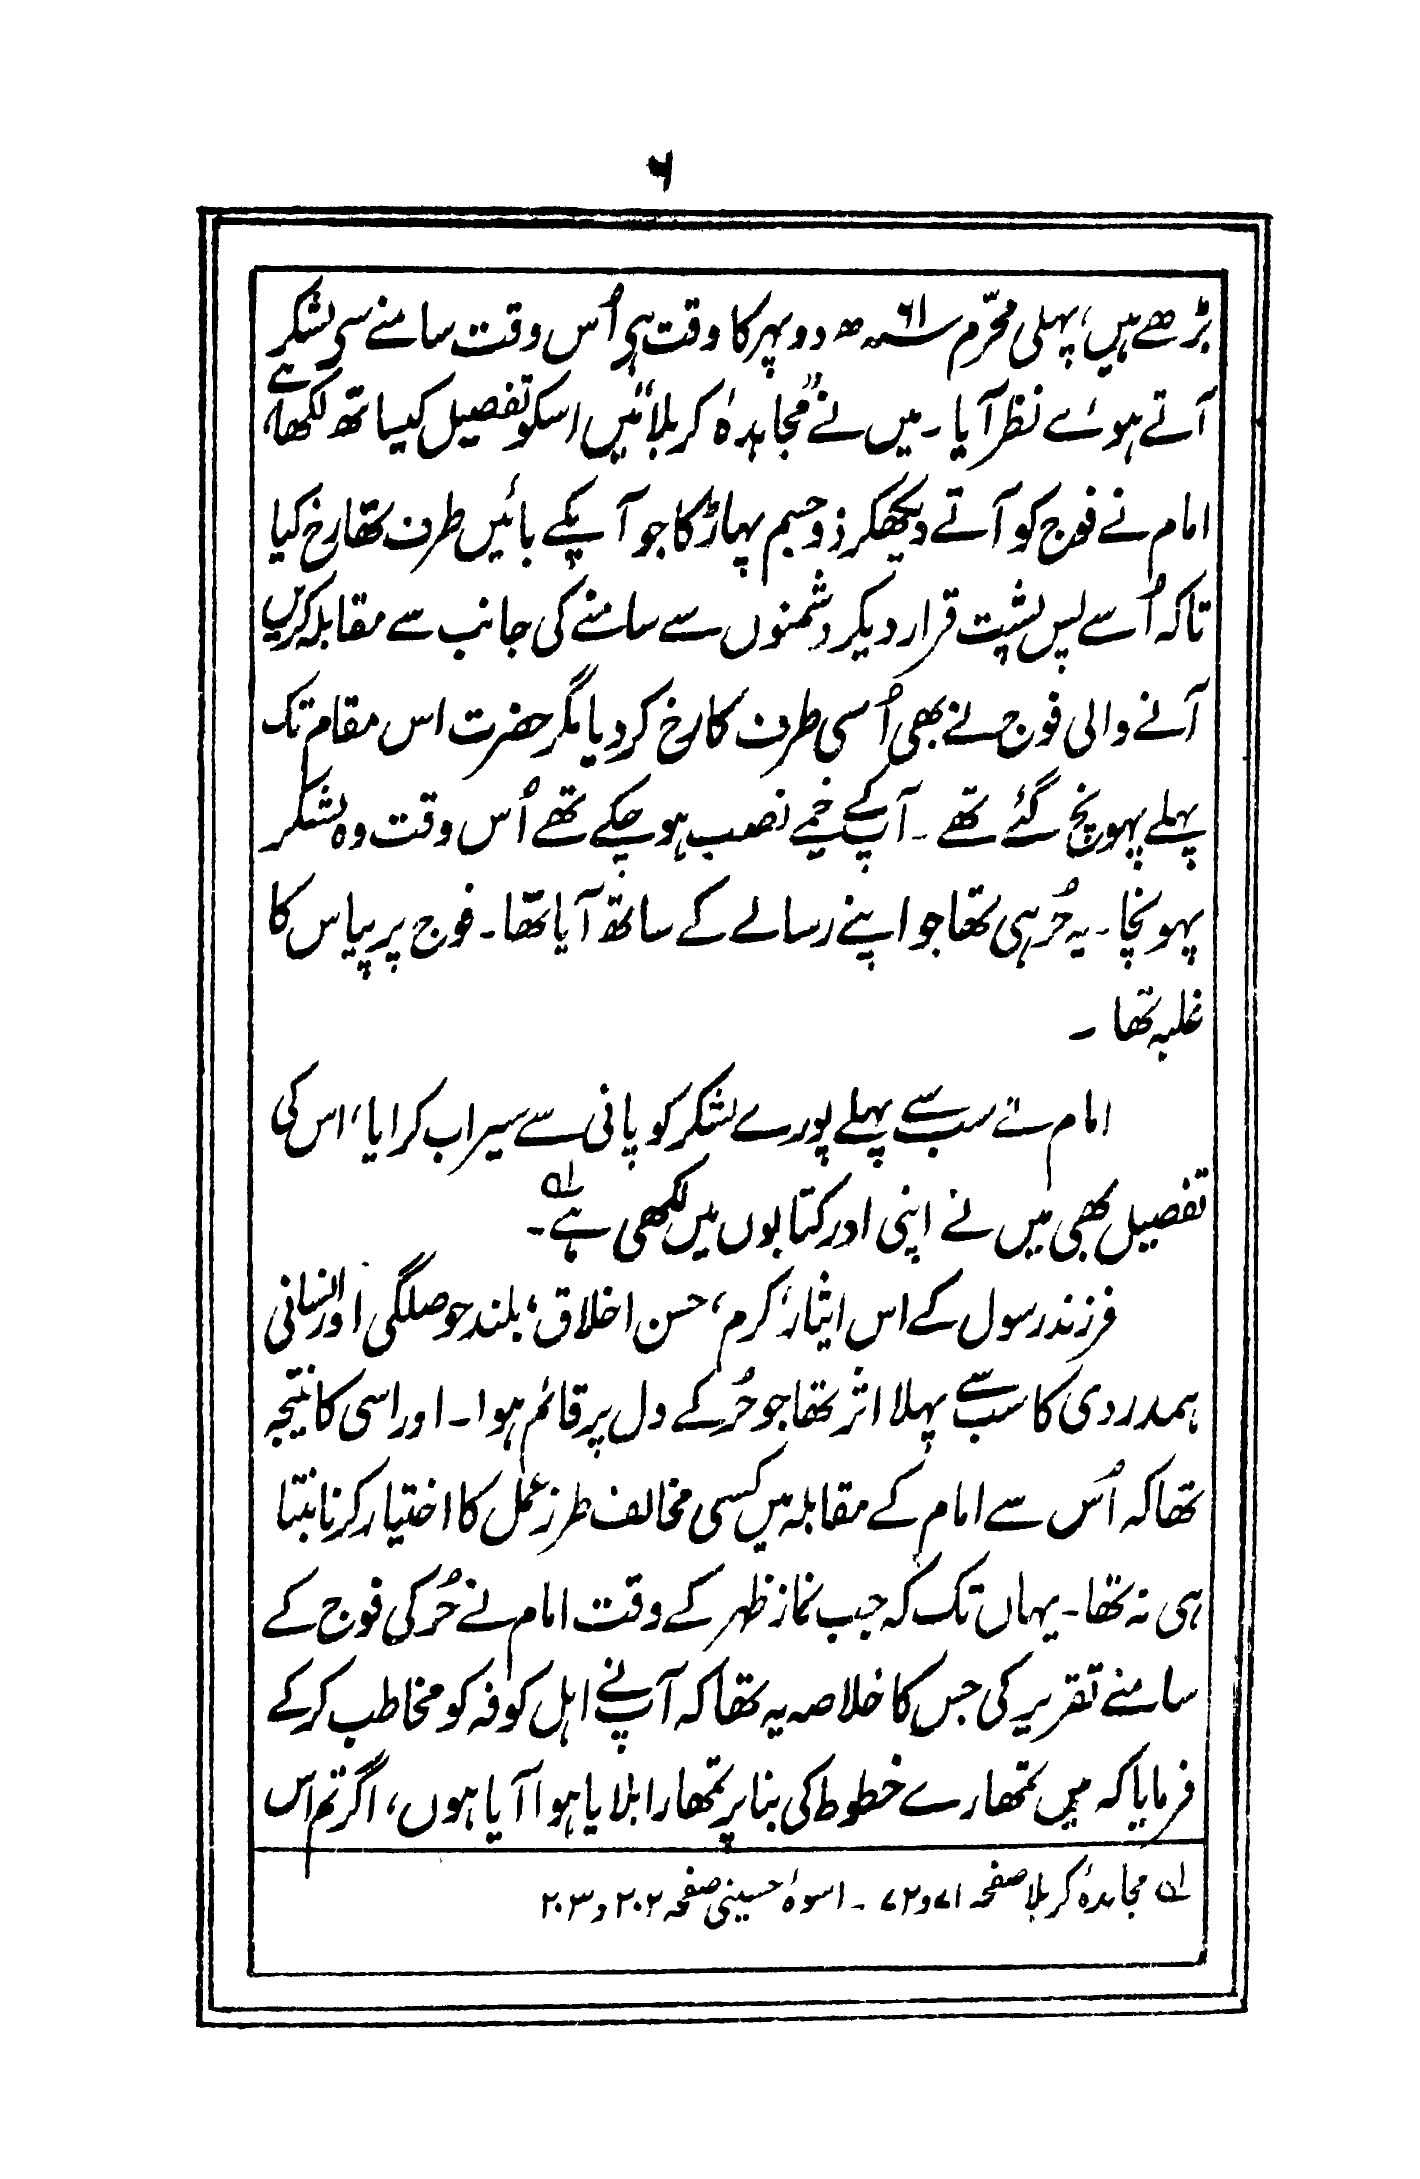 ۶
بڑھے ہیں، پہلی محرّم ۶۱ھ دوپہر کا وقت ہی اُس وقت سامنے سی لشکر
آتے ہوئے نظر آیا۔ میں نے "مجاہدۂ کربلا" میں اسکو تفصیل کیساتھ لکھا ہے،
امام نے فوج کو آتے دیکھکر ذوحسم پہاڑ کا جو آپکے بائیں طرف تھا رخ کیا
تاکہ اُسے پس پشت قرار دیکر دشمنوں سے سامنے کی جانب سے مقابلہ کریں
آنے والی فوج نے بھی اُسی طرف کا رخ کر دیا مگر حضرت اس مقام تک
پہلے پہونچ گئے تھے۔ آپ کے خیمے نصب ہو چکے تھے اُس وقت وہ لشکر
پہونچا۔ یہ حُر ہی تھا جو اپنے رسالے کے ساتھ آیا تھا۔ فوج پر پیاس کا
غلبہ تھا۔
امام نے سب سے پہلے پورے لشکر کو پانی سے سیراب کرایا، اس کی
تفصیل بھی میں نے اپنی اور کتابوں میں لکھی ہے۔ لہ
فرزند رسول کے اس ایثار، کرم، حسن اخلاق، بلند حوصلگی اور انسانی
ہمدردی کا سب سے پہلا اثر تھا جو حُر کے دل پر قائم ہوا۔ اور اسی کا نتیجہ
تھا کہ اُس سے امام کے مقابلہ میں کسی مخالف طرز عمل کا اختیار کرنا بنتا
ہی نہ تھا۔ یہاں تک کہ جب نماز ظہر کے وقت امام نے حُر کی فوج کے
سامنے تقریر کی جس کا خلاصہ یہ تھا کہ آپ نے اہل کوفہ کو مخاطب کر کے
فرمایا کہ میں تمھارے خطوط کی بنا پر تمھارا بلایا ہوا آیا ہوں، اگر تم اس
لہ مجاہدۂ کربلا صفحہ ۷۱ و ۷۲ ۔ اسوۂ حسینی صفحہ ۲۰۲ و ۲۰۳